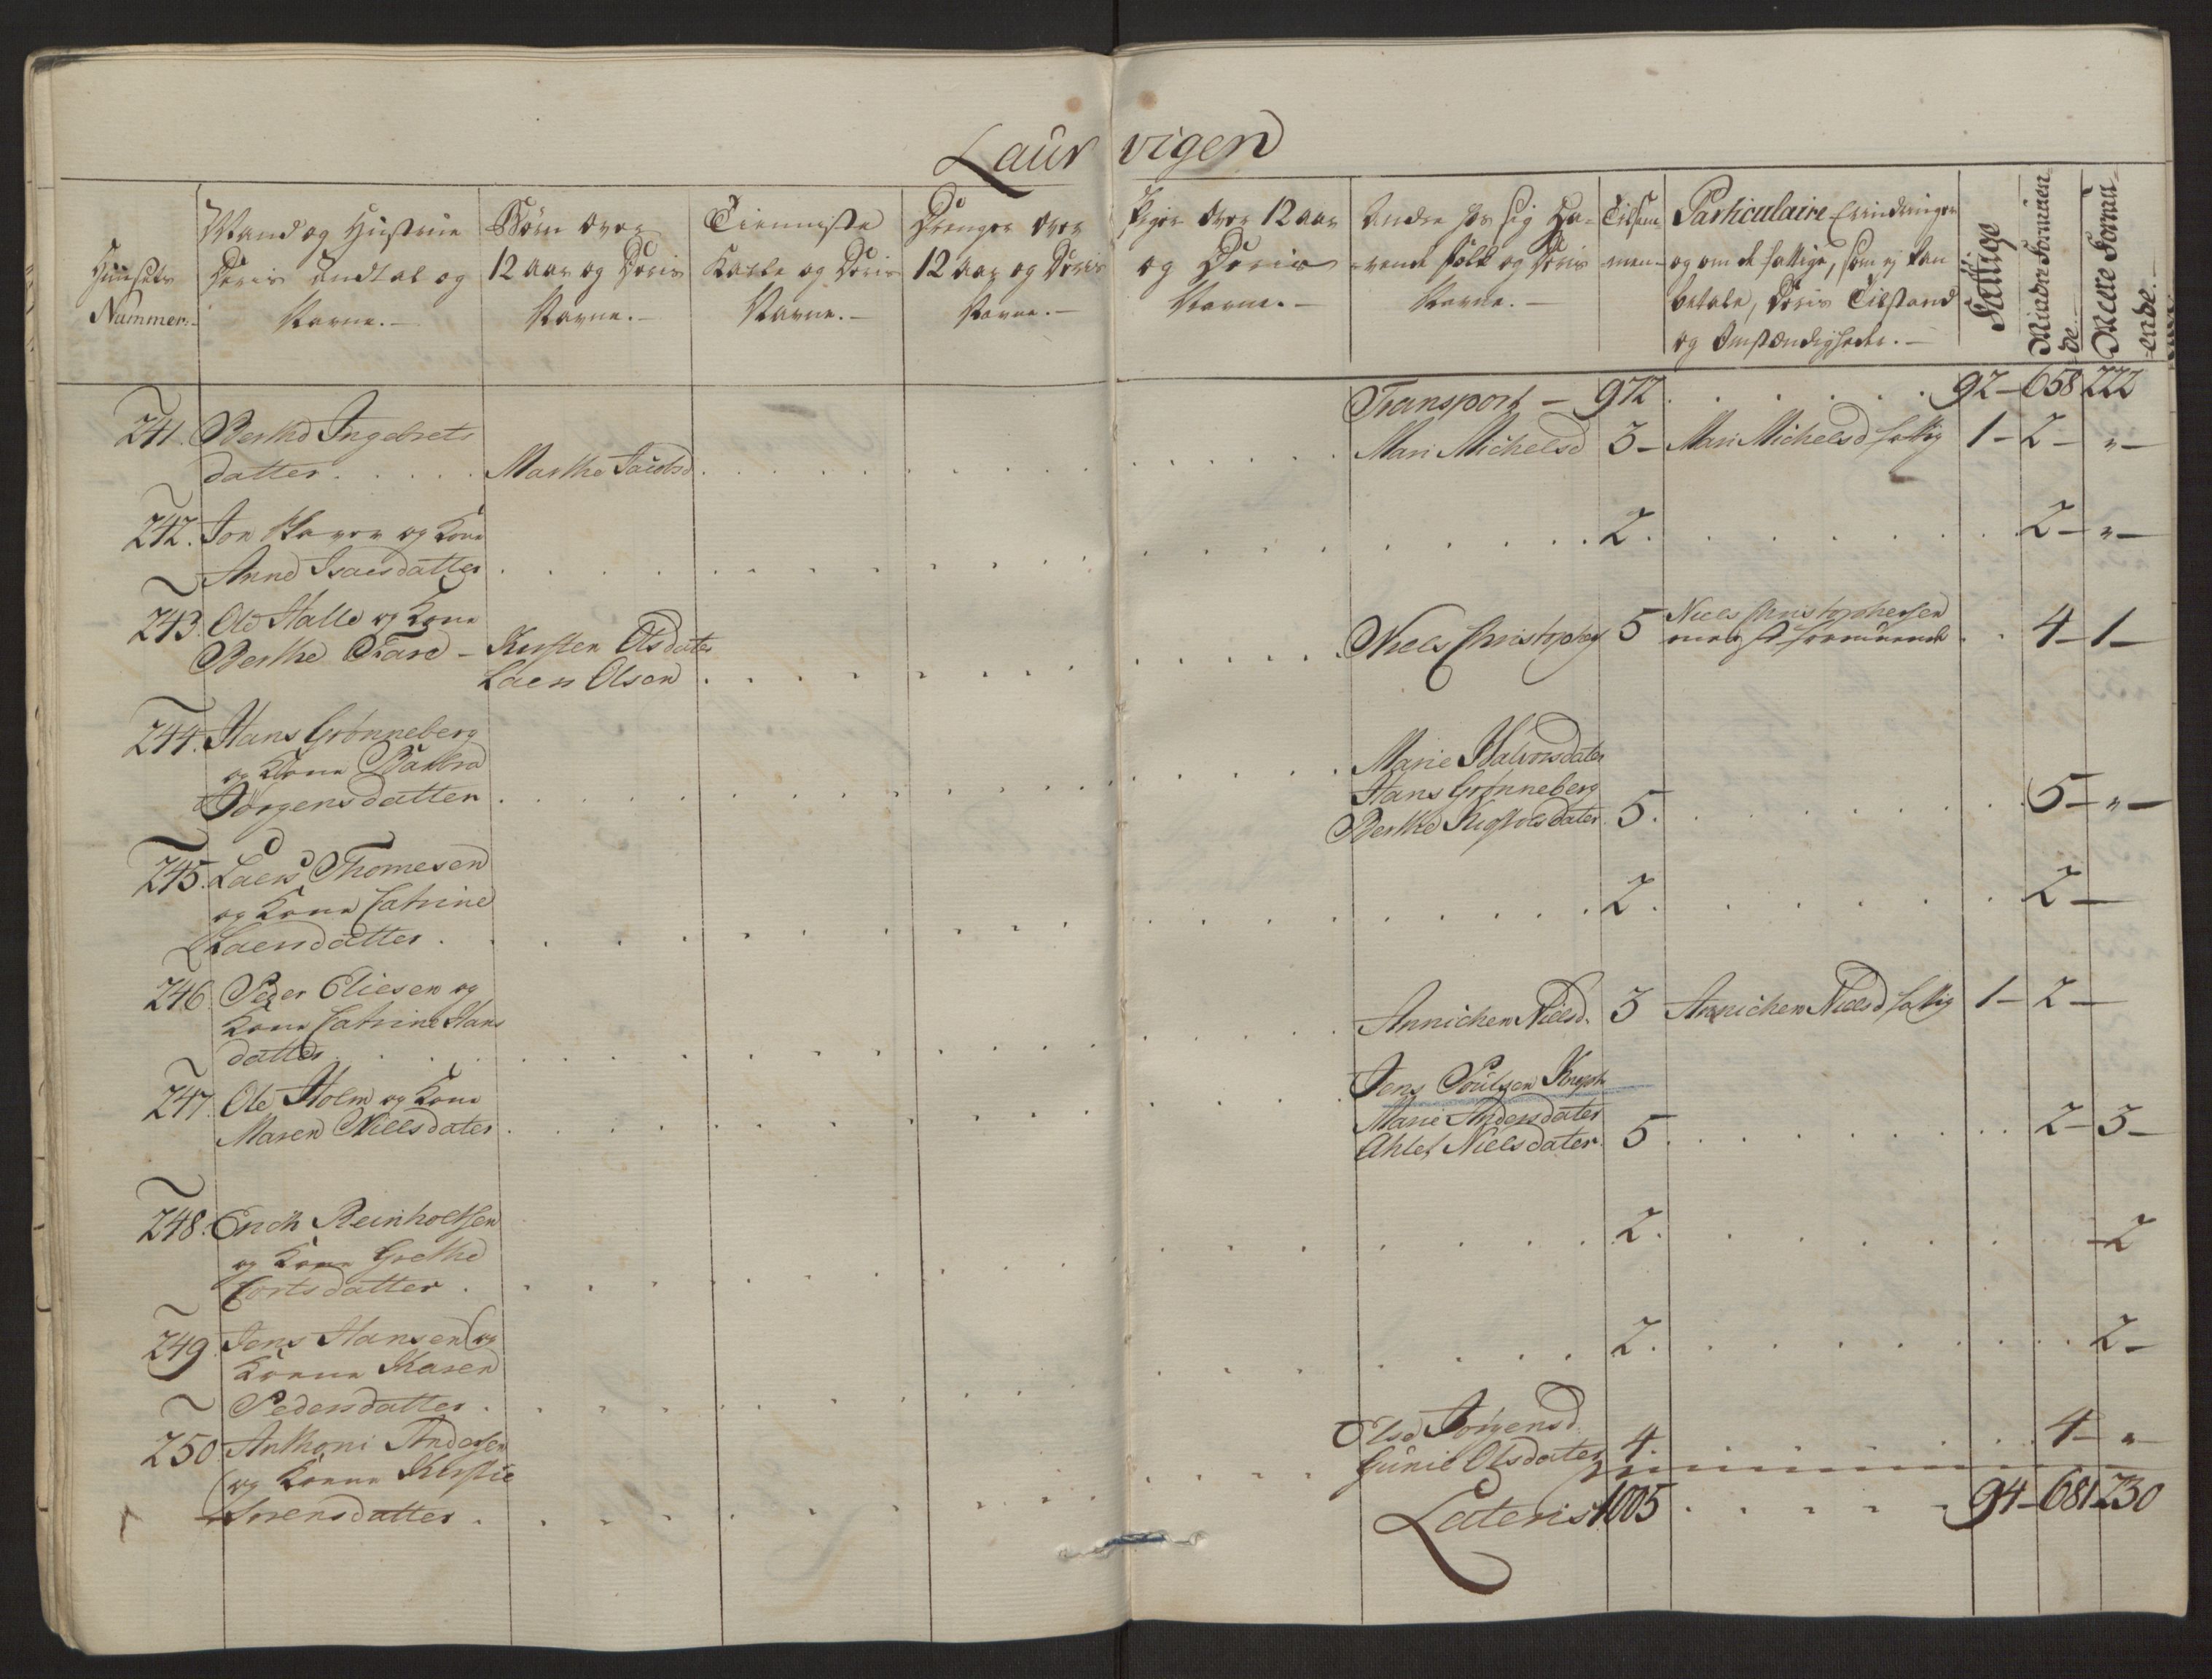 Laurvigen
Huusets Nummer.
Mand og Hustrue Deris Andtal og Navne.
Børn over 12 Aar og Deris Navne.
Tienneste Karle og Deris Navne.
Drenger over 12 Aar og Deris Navne.
Piger over 12 Aar og Deris Navne.
Andre hos sig Havende Folk og Deris Navne.
Tilsammen
Particulaire Erindringer og om de fattige, som ej kan betale, Deris Tilstand og Omstændigheder.
Fattige
Mindre Formuende
Meere Formuende
Transport - 972 . . . . . 92 - 658 222
241. Berthe Ingebrets
datter . . . . Marthe Jacobsd . . . Mari Michelsd 3 - Mari Michelsd fattig 1 - 2 - " -
242. Jon og Kone
Anne Isacsdatter . . . 2. . . . 2 - " -
243. Ole Halle og Kone
Berthe - Kirsten Olsdater
Laers Olsen . . . Niels Christophers 5 Niels Christophersen
formuende . . 4 - 1 -
244. Hans Grønneberg
og Kone Barbra
Jørgensdatter . . . Marie Halvorsdater
Hans Grønneberg
Berthe dater. 5. . . . 5 - " -
245. Laers Thomesen
og Kone Catrine
Laersdatter . . . 2. . . . 2 -
246. Peder Eliesen og
Kone Catrine Hans
datter . . . Annichen Nielsd. 3 Annichen Nielsd fattig 1 - 2 -
247. Ole Holm og Kone
Maren Nielsdater . . . Jens Poulsen
Marie Andersdater
Ahlet Nielsdater. 5. . . . 2 - 3 -
248. Erich Reinholtsen
og Kone Grethe
Cortsdatter . . . 2. . . . 2
249. Jens Hansen og
Konne Karen
Pedersdatter . . . 2. . . . 2 -
250. Anthoni Andersen
og Konne Kirstie
Sørensdatter . . . Else Jørgensd.
Gunil Olsdater 4. . . . 4 - "
Lateris 1005 . . . . . 94 - 681 230